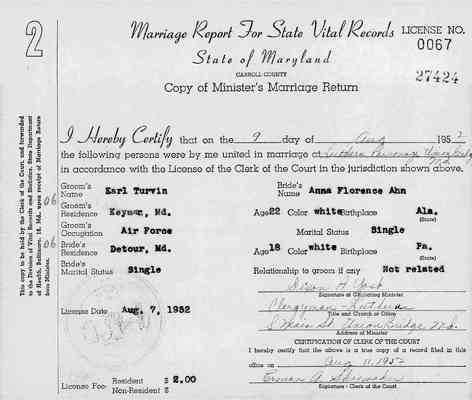 2
Marriage Report For State Vital Records
LICENSE NO.
0067
State of Maryland
27424
CARROLL COUNTY
Copy of Minister's Marriage Return
This copy to be held by the Clerk of the Court, and forwarded
to the Division of Vital Records and Statistics, State Department
of Health, Baltimore, 18, Md., upon receipt of Marriage Return
from Minister.
I Hereby Certify that on the 9 day of Aug 1952
the following persons were by me united in marriage at Lutheran Parsonage Union Bridge Md.
in accordance with the License of the Clerk of the Court in the jurisdiction shown above.
Groom's Name Earl Turvin
Bride's Name Anna Florence Ahn
06 Groom's Residence Keymar, Md.
Age 22 Color white Birthplace Ala.
(State)
Groom's Occupation Air Force
Marital Status Single
06 Bride's Residence Detour, Md.
Age 18 Color white Birthplace Pa.
(State)
Bride's Marital Status Single
Relationship to groom if any Not related
H York
Signature of Officiating Minister
Clergyman - Lutheran
Title and Church or Office
License Date Aug. 7, 1952
Main St. Union Bridge Md.
Address of Minister
CERTIFICATION OF CLERK OF THE COURT
I hereby certify that the above is a true copy of a record filed in this
office on Aug 11, 1952
License Fee- Resident $ 2.00
Non-Resident $
A. Shoemaker
Signature - Clerk of the Court